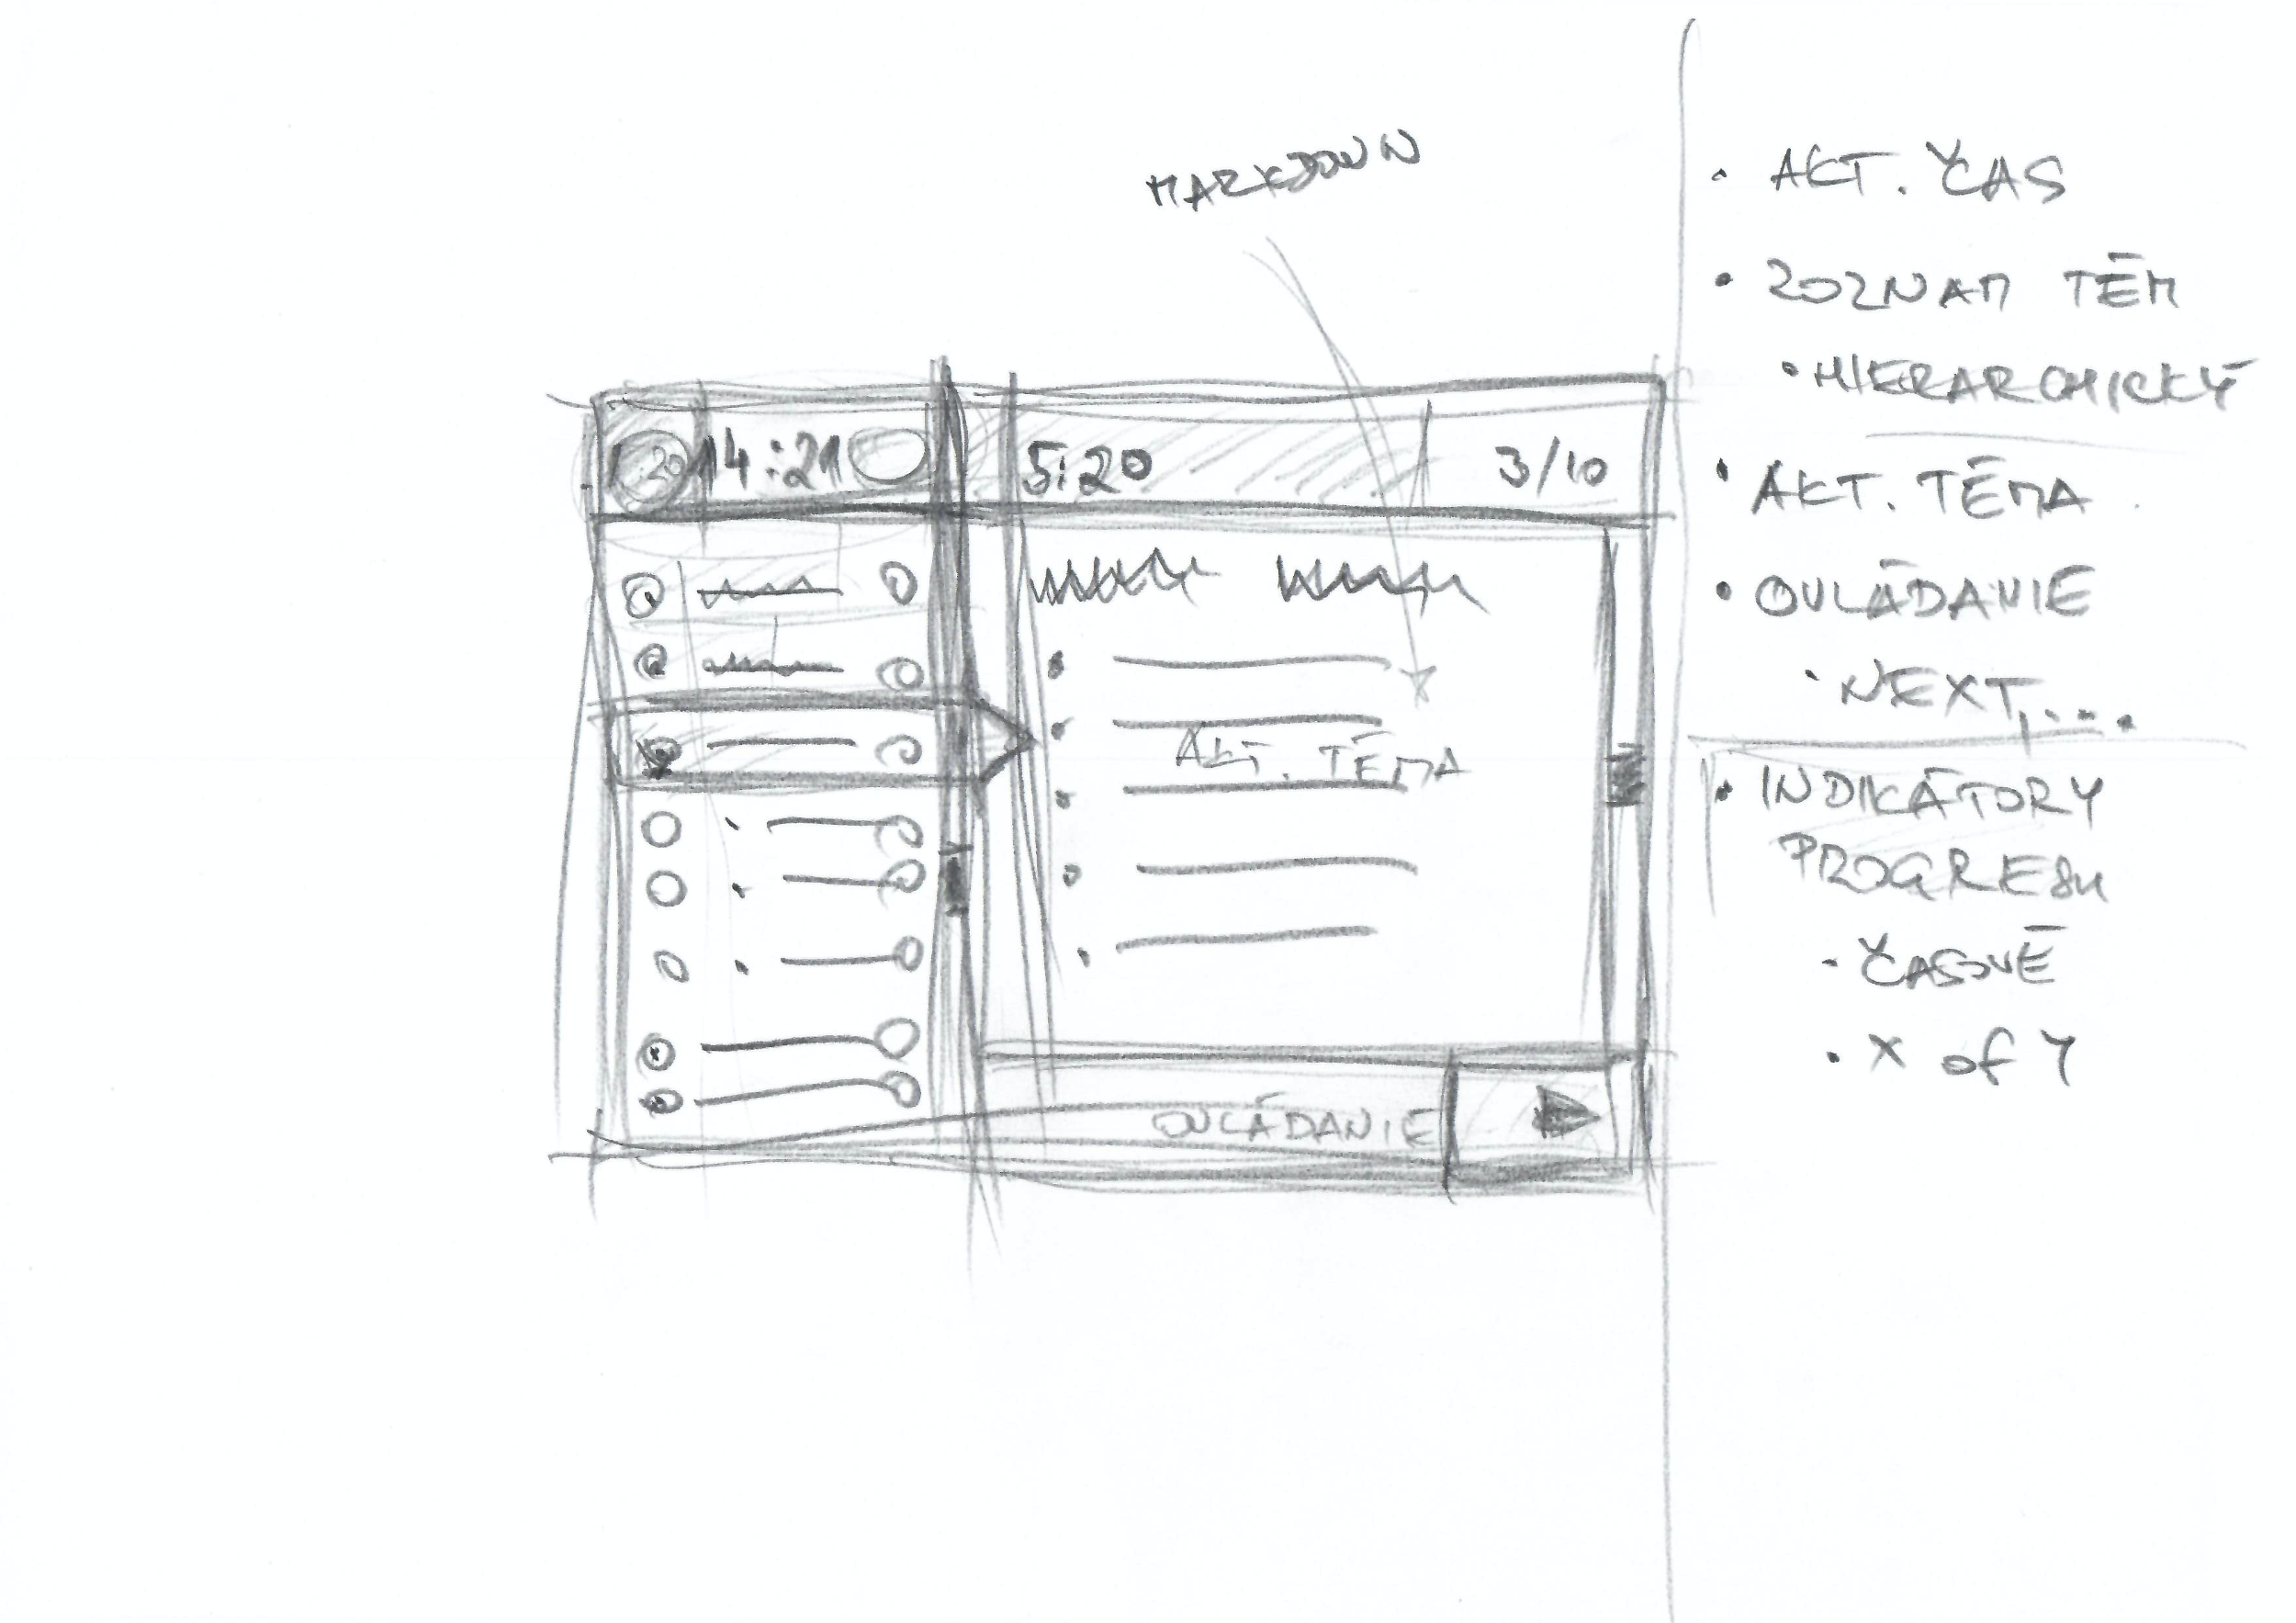 MARKDOWN
:20
14:21
5:20
3/10
AKT. TÉMA
OVLÁDANIE
• AKT. ČAS
• ZOZNAM TÉM
• HIERARCHICKÝ
• AKT. TÉMA
• OVLÁDANIE
• NEXT,...
• INDIKÁTORY
PROGRESU
• ČASOVÉ
• X of Y